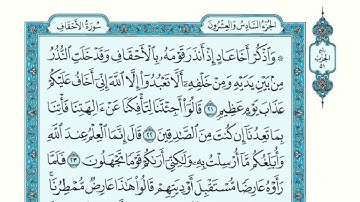 سُورَةُ الأَحْقَافِ
الجُزْءُ السَّادِسُ وَالعِشْرُونَ
۞ وَٱذْكُرْ أَخَا عَادٍ إِذْ أَنذَرَ قَوْمَهُۥ بِٱلْأَحْقَافِ وَقَدْ خَلَتِ ٱلنُّذُرُ
مِنۢ بَيْنِ يَدَيْهِ وَمِنْ خَلْفِهِۦٓ أَلَّا تَعْبُدُوٓا۟ إِلَّا ٱللَّهَ إِنِّىٓ أَخَافُ عَلَيْكُمْ
عَذَابَ يَوْمٍ عَظِيمٍ ٢١ قَالُوٓا۟ أَجِئْتَنَا لِتَأْفِكَنَا عَنْ ءَالِهَتِنَا فَأْتِنَا
بِمَا تَعِدُنَآ إِن كُنتَ مِنَ ٱلصَّـٰدِقِينَ ٢٢ قَالَ إِنَّمَا ٱلْعِلْمُ عِندَ ٱللَّهِ
وَأُبَلِّغُكُم مَّآ أُرْسِلْتُ بِهِۦ وَلَـٰكِنِّىٓ أَرَىٰكُمْ قَوْمًا تَجْهَلُونَ ٢٣ فَلَمَّا
رَأَوْهُ عَارِضًا مُّسْتَقْبِلَ أَوْدِيَتِهِمْ قَالُوا۟ هَـٰذَا عَارِضٌ مُّمْطِرُنَا ۚ
الحِزْب
٥١